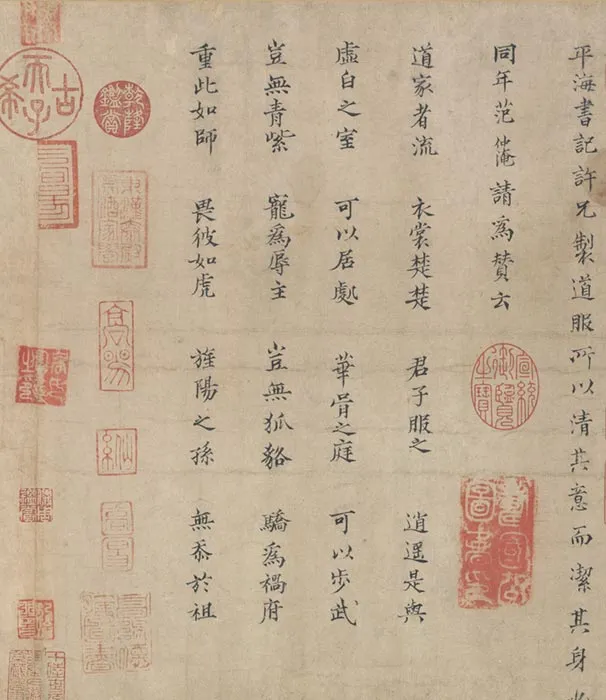 平海書記許兄製道服所以清其意而潔其身
同年范仲淹請爲贊云
道家者流 衣裳楚楚 君子服之 逍遥是與
虛白之室 可以居處 華胥之庭 可以步武
豈無青紫 寵爲辱主 豈無狐貉 驕爲禍府
重此如師 畏彼如虎 旌陽之孫 無忝於祖
宣統御覽之寶
乾隆鑑賞
古希天子